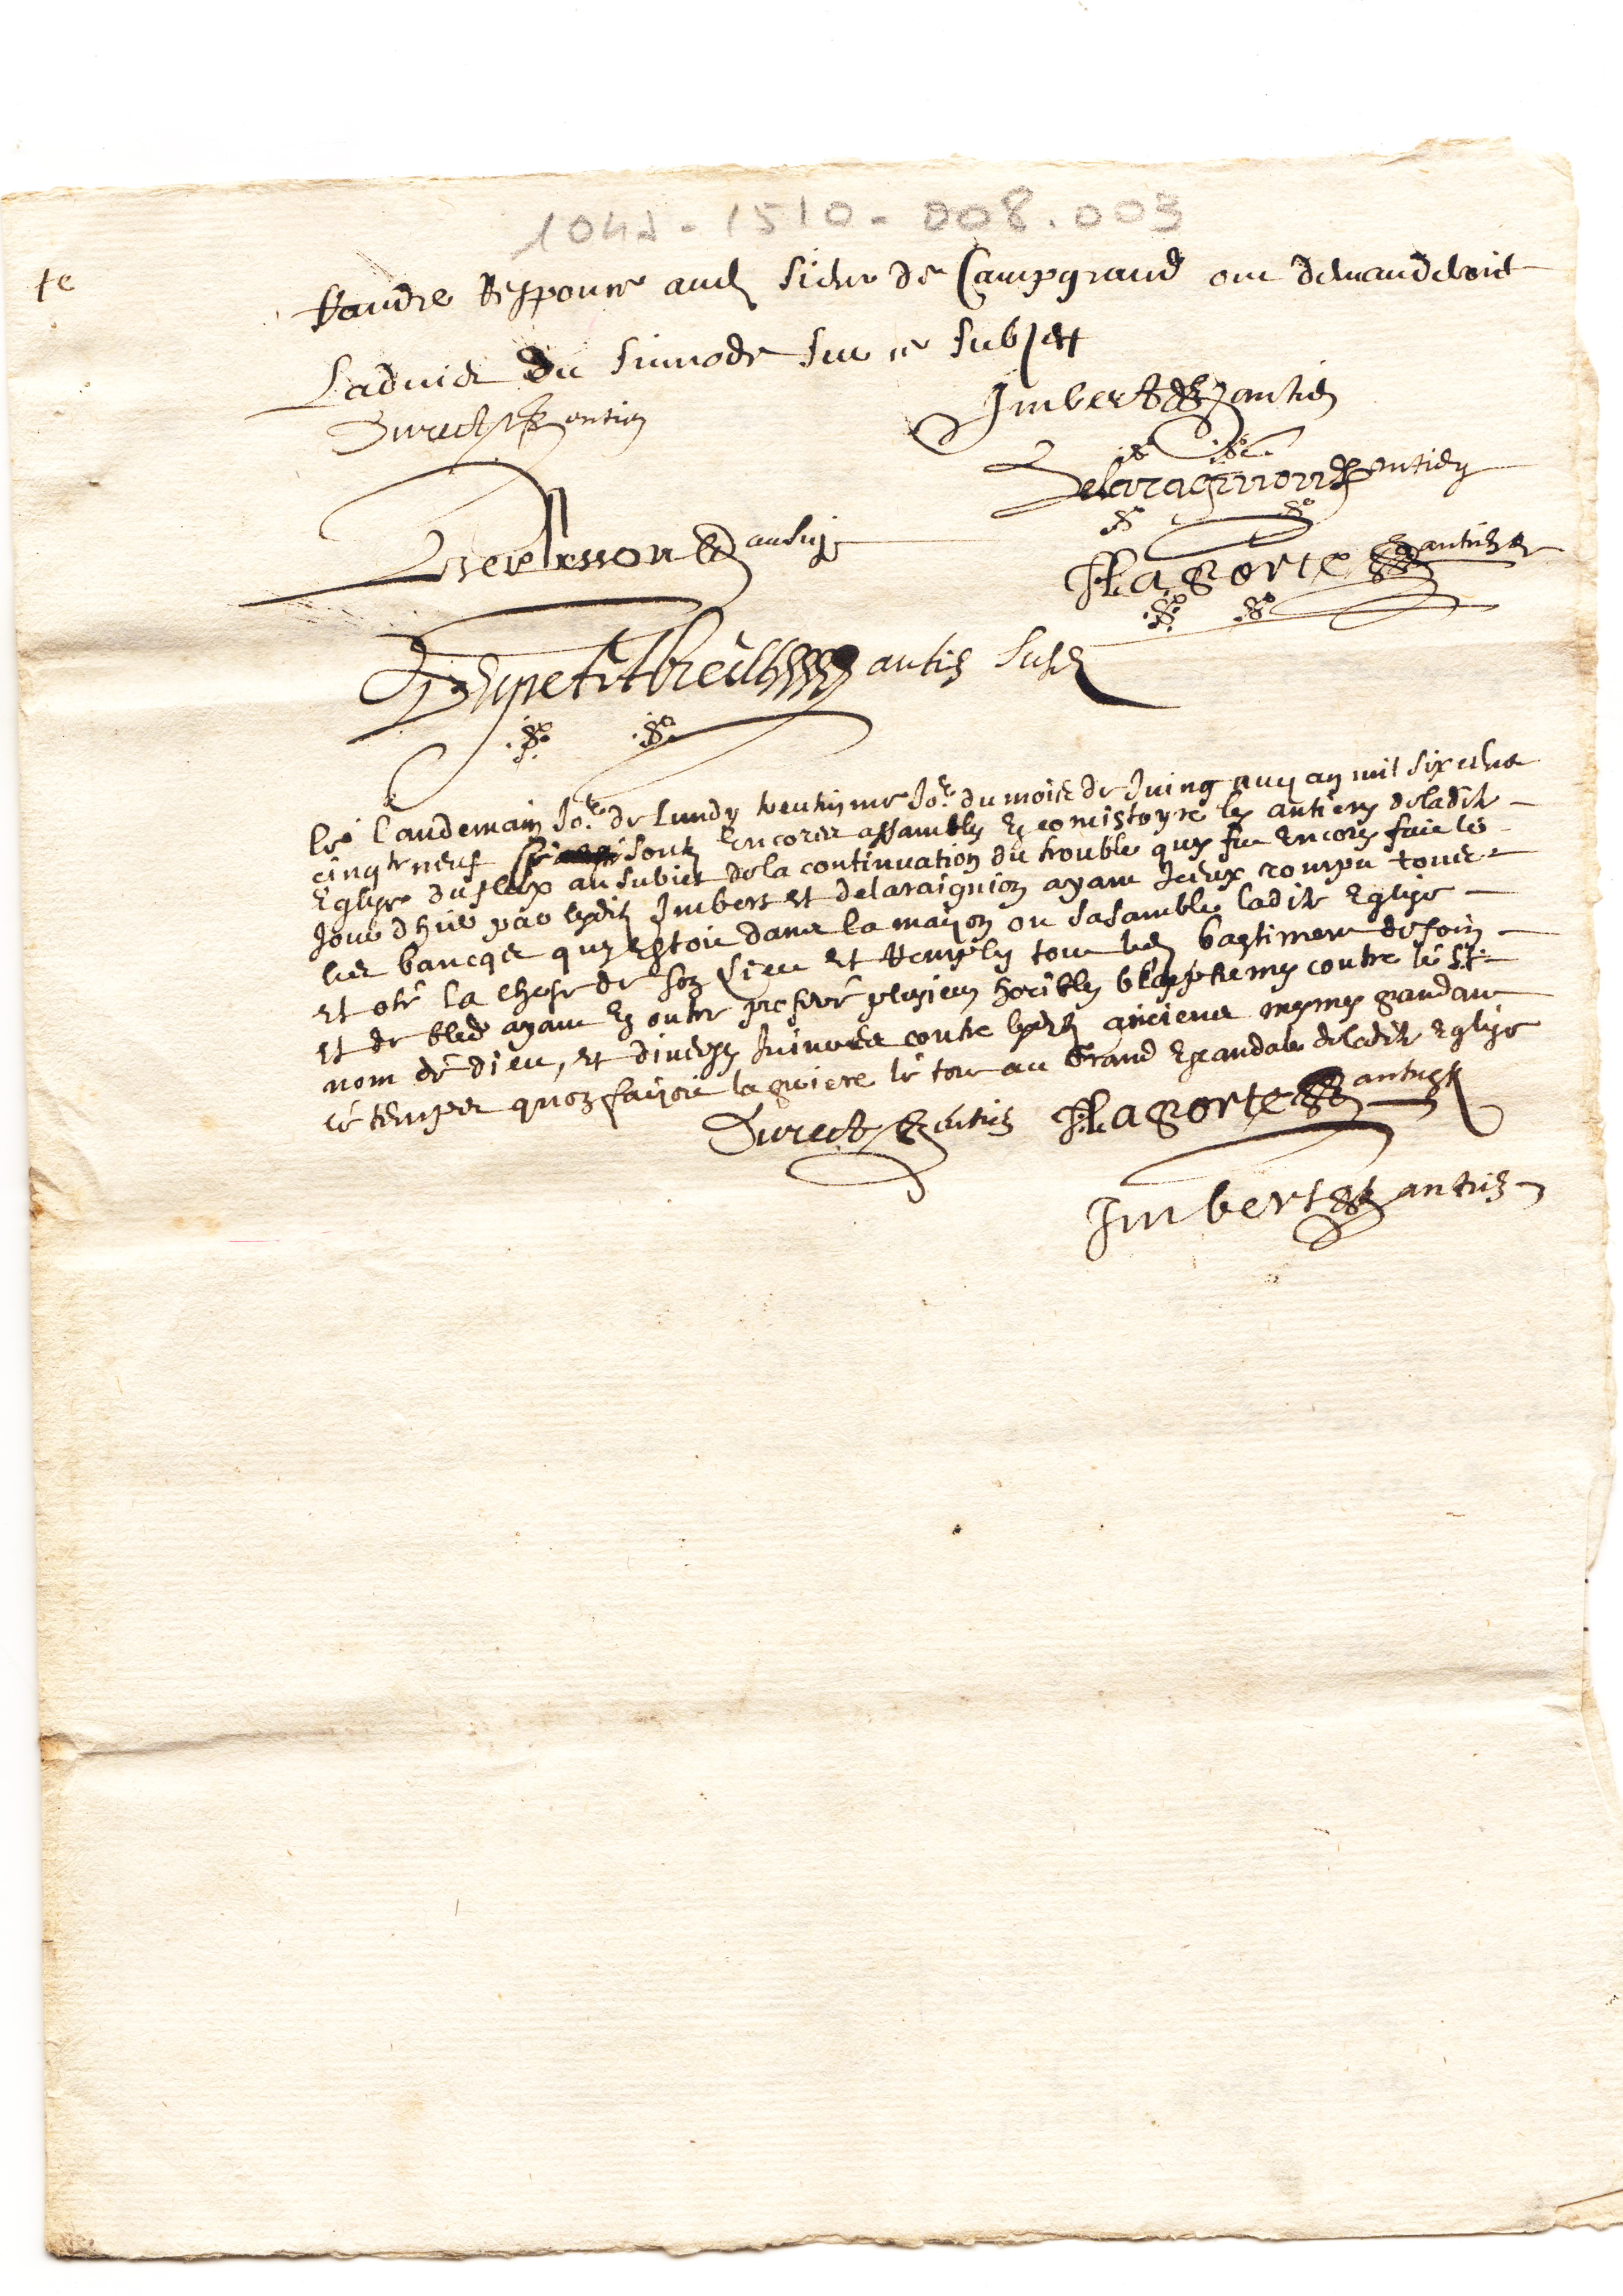 1042-1510-008.003
te
Randre Responce aud Sieur de Campgrand on demanderoit
Ladvis du Sinnode sur ce Subject
Imbert antien
Duract antien
Delaraignion antien
antien
Lagorte antien
Dupetitbreilh antien Susd
Le landemain Jor de Lundy trentiesme Jor du mois de Juing aud an mil six cens
cinqte neuf se sont Encores assambles En consistoyre les antiens deladite
Eglise du fleix au subiet dela continuation du trouble quy fut Encores faict le
Jourdhui par lesdits Imbert et delaraignion ayant Iceux rompu tous
les bancqs quy Estoit dans la maison ou sasamble ladite Eglise
et oté la chese de son lieu et Remply tout led bastiment de foin
et de bled ayant En outre proferé plusieurs horibles blasphemes contre le St
nom de dieu, et diverses Iniures contre lesd anciens mesmes pandant
le temps quon faisoit la priere le tout au Grand Escandale deladite Eglise
Duract antien Lagorte antien
Imbert antien